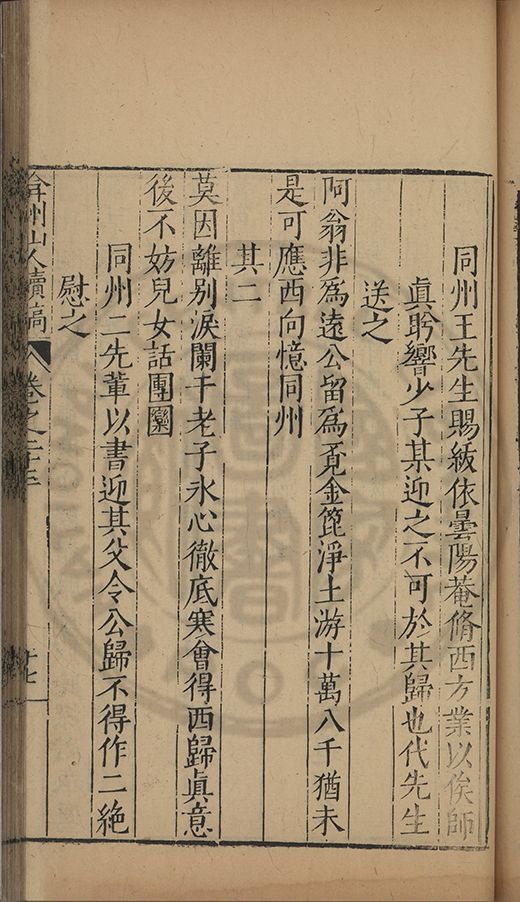 同州王先生賜紱依曇陽菴脩西方業以俟師
真肹響少子某迎之不可於其歸也代先生
送之
阿翁非爲遠公留爲覔金篦淨土游十萬八千猶未
是可應西向憶同州
其二
莫因離别淚闌干老子氷心徹底寒會得西歸眞意
後不妨兒女話團圞
同州二先軰以書迎其父令公歸不得作二絶
慰之
弇州山人續稿
卷之二十五